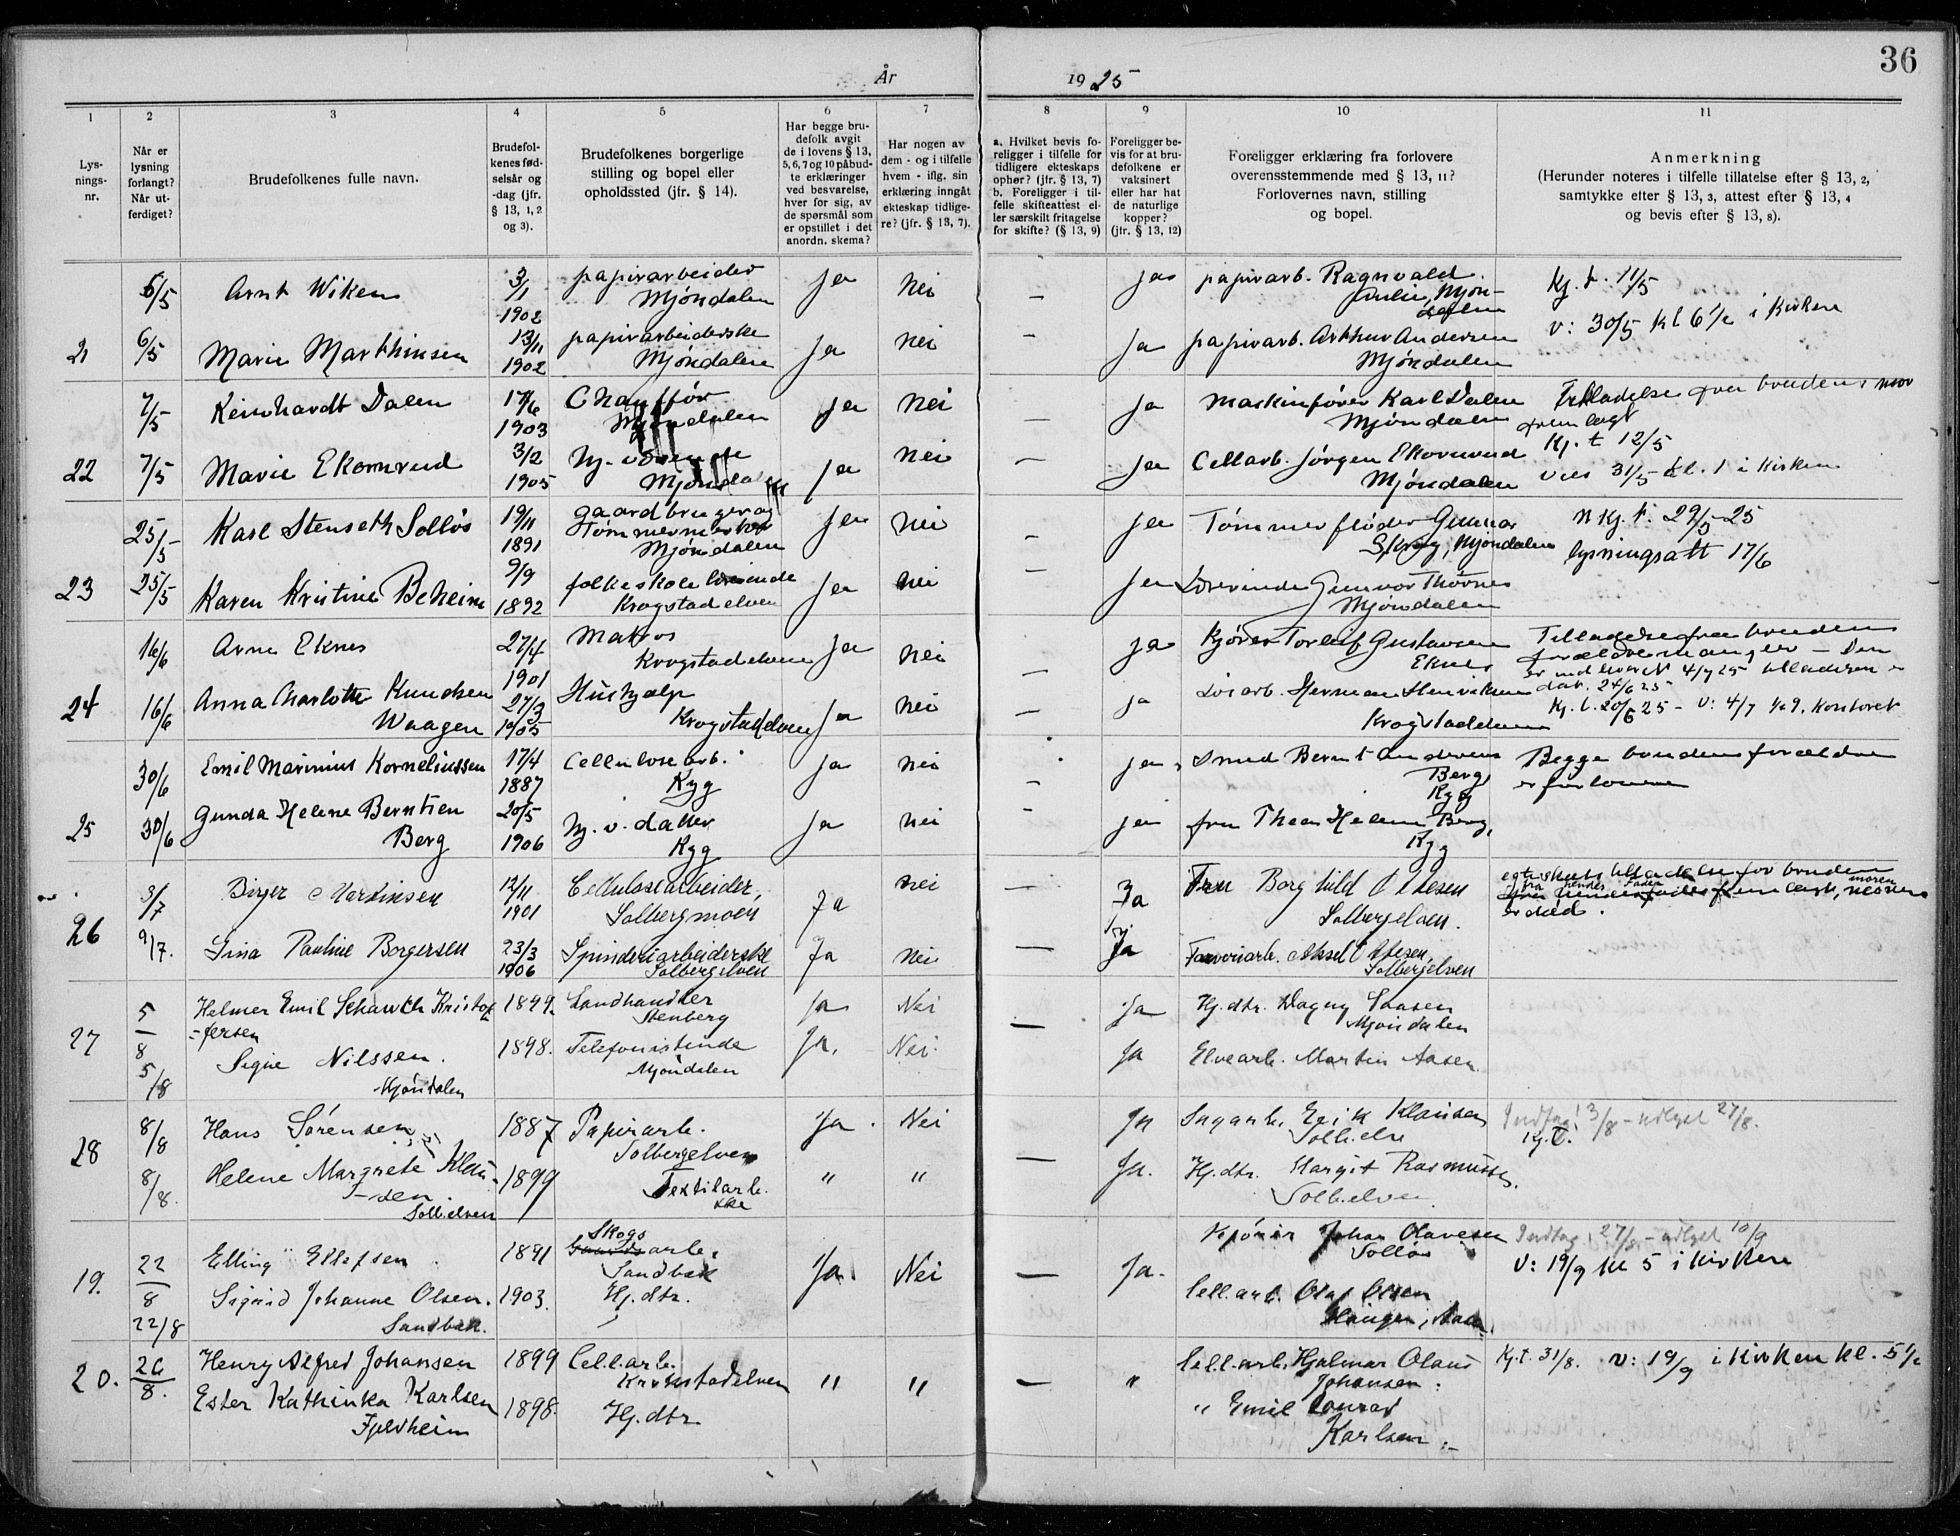 36
År 1925
1 2 3 4 5 6 7 8 9 10 11
Lys-
nings-
nr.
Når er
lysning
forlangt?
Når ut-
ferdiget?
Brudefolkenes fulle navn.
Brudefol-
kenes fød-
selsår og
-dag (jfr.
§ 13, 1, 2
og 3).
Brudefolkenes borgerlige
stilling og bopel eller
opholdssted (jfr. § 14).
Har begge bru-
defolk avgit
de i lovens § 13,
5, 6, 7 og 10 påbud-
te erklæringer
ved besvarelse,
hver for sig, av
de spørsmål som
er opstillet i det
anordn. skema?
Har nogen av
dem - og i tilfelle
hvem - iflg. sin
erklæring inngått
ekteskap tidlige-
re? (jfr. § 13, 7).
a. Hvilket bevis fo-
religger i tilfelle for
tidligere ekteskaps
ophør? (jfr. § 13, 7)
b. Foreligger i til-
felle skifteattest el-
ler særskilt fritagelse
for skifte? (§ 13, 9)
Foreligger be-
vis for at bru-
defolkene er
vaksinert
eller har hat
de naturlige
kopper?
(jfr. § 13, 12)
Foreligger erklæring fra forlovere
overensstemmende med § 13, 11?
Forlovernes navn, stilling
og bopel.
Anmerkning
(Herunder noteres i tilfelle tillatelse efter § 13, 2,
samtykke efter § 13, 3, attest efter § 13, 4
og bevis efter § 13, 8).
6/5 Arnt Wiken 3/1 1902 papirarbeider Mjøndalen Ja Nei — Ja papirarb. Ragnvald Mjøn- Kj. t. 11/5
v: 30/5 Kl 6 1/2 i Kirken
21 6/5 Marie Marthinsen 13/11 1902 papirarbeiderske Mjøndalen Ja Nei — Ja papirarb. Arthur Andersen Mjøndalen
7/5 Reinhardt Dalen 17/6 1903 Chauffør Mjøndalen Ja Nei — Ja Maskinfører Karl Dalen Mjøndalen Tilladelse fra brudens mor
fremlagt
Kj. t 12/5
22 7/5 Marie Ekornrud 3/2 1905 Mjøndalen Ja Nei — Ja Cellarb. Jørgen Ekornrud Mjøndalen vies 31/5 - kl. 1 i Kirken
25/5 Karl Stenseth Solløs 19/11 1891 gaardbruger og Tømmermester Mjøndalen Ja Nei — Ja Tømmerfløder Gunnar Skrog, Mjøndalen N Kj. t. 29/5-25
lysningsatt 17/6
23 25/5 Karen Kristine Beheim 9/9 1892 folkeskolelærerinde Krogstadelven Ja Nei — Ja Lærerinde Gunvor Mjøndalen
16/6 Arne Eknes 27/4 1901 Matros Krogstadelven Ja Nei — Ja Kjører Torleif Gustavsen Eknes Tilladelse fra brudens
forældre mangler - Den
er indleveret 4/7 25 tilladelsen er
dat. 24/6 25
24 16/6 Anna Charlotte Knudsen Waagen 27/3 1905 Hushjælp Krogstadelven Ja Nei — Ja Herman Henriksen Krogstadelven Kj. t. 20/6 25 - v: 4/7 Kontoret
30/6 Emil Marinius Korneliussen 17/4 1887 Cellulosearb. Ryg Ja Nei — Ja Smed Bernt Andersen Berg, Ryg Begge brudens forældre
er forlovere
25 30/6 Gunda Helene Berntsen Berg 20/5 1906 Hj. v. datter Ryg Ja Nei — Ja fru Thea Helene Berg, Ryg
3/7 Birger Martinsen 12/11 1901 Cellulosearbeider, Solbergmoen Ja Nei — Ja Fru Borghild Ottesen Solbergelven. egteskabstilladelse for bruden
fra hendes Fader fremlagt, moren
er død.
26 9/7. Gina Pauline Borgersen 23/3 1906 Spinderiarbeiderske Solbergelven Ja Nei — Ja Farveriarb. Aksel Ottesen, Solbergelven
27 5/8 Helmer Emil Schawth Kristof-
fersen 1899. Landhandler Stenberg Ja Nei — Ja Hj. dtr. Dagny Aasen Mjøndalen
5/8 Signe Nilssen. Mjøndalen 1898. Telefonistinde Mjøndalen Ja. Nei. Ja Elvearb. Martin Aasen
28 8/8 Hans Sørensen 1887 Papirarb. Solbergelven Ja. Nei — Ja Sagarb. Erik Klausen Solb.elv Indtag! 3/8 - utlyst 27/8.
Kj. t.
8/8. Helene Margrete Klau-
sen. Solb.elven 1899 Textilarb.ske " " Ja. Hj. dtr. Margit Rasmussen. Solb.elven
19. 22/8 Elling Ellefsen 1891 Skogsarb. Sandbæk Ja. Nei — Ja. Kjører Johan Olavesen Solløs Indtag! 27/8 - utlyst 10/9
v: 19/9 kl 5 i Kirken
22/8 Sigrid Johanne Olsen. Sandbæk. 1903. Hj. dtr. Cell.arb. Olaf Olsen Haugen,
20. 26/8. Henry Alfred Johansen 1899 Cell.arb. Krokstadelven " " — " Cell.arb. Hjalmar Olaus Johansen. Kj. t. 31/8. v: 19/9 i Kirken kl. 5 1/2
Ester Kathinka Karlsen Fjeldheim 1898. Hj. dtr. " Emil Konrad Karlsen.